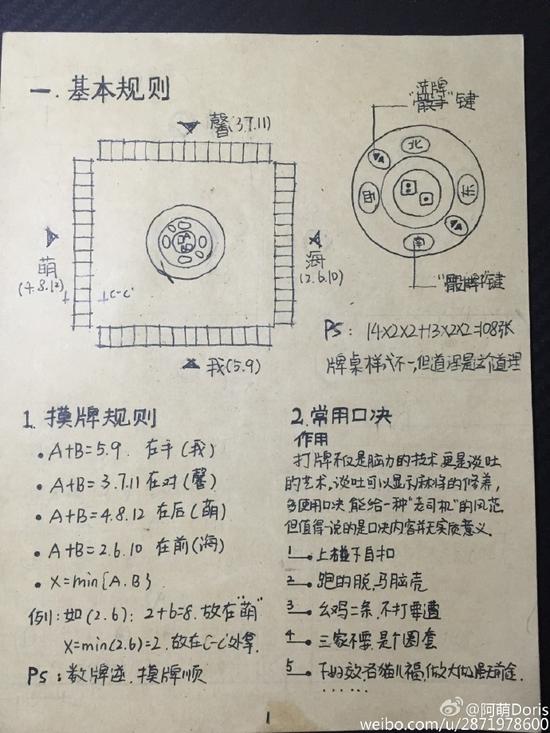 一.基本规则
馨(3.7.11)
萌
(4.8.12)
海
(2.6.10)
C-C'
我(5.9)
洗牌
"骰子"键
北
西
东
南
PS: 14X2X2+13X2X2=108张
牌桌样式不一,但道理是这个道理
1. 摸牌规则
• A+B=5.9. 在手(我)
• A+B=3.7.11 在对(馨)
• A+B=4.8.12 在后(萌)
• A+B=2.6.10 在前(海)
• X=min{A.B}
例:如(2.6): 2+6=8. 放在"萌"
X=min(2.6)=2. 放在C-C'处拿.
PS: 数牌逆.摸牌顺
2.常用口决
作用
打牌不仅是脑力的技术,更是谈吐
的艺术,谈吐可以显示麻将的修养,
多使用口决 能给一种"老司机"的风范
但值得一说的是口决内容并无实质意义.
1 上碰下自扣
2 跑的脱,马脑壳
3 幺鸡二条,不打要遭
4 三家不要,是个圈套
5
1
@阿萌Doris
weibo.com/u/2871978600